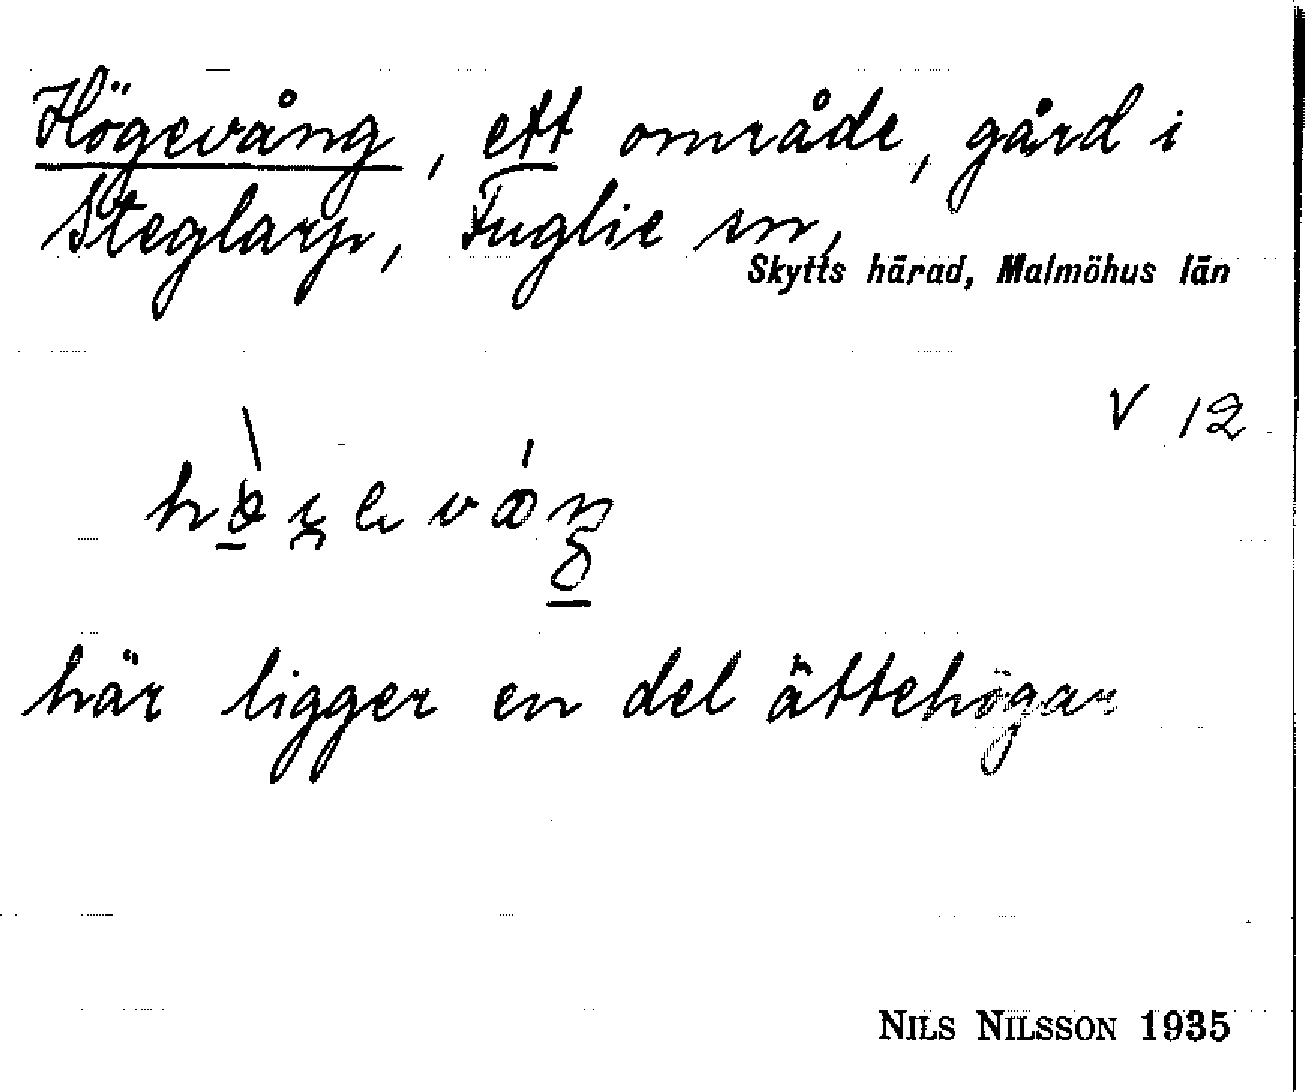 Högevång, ett område, gård i
Steglarp, Fuglie sn,
Skytts härad, Malmöhus län
V 12
här ligger en del ättehögar
NILS NILSSON 1935